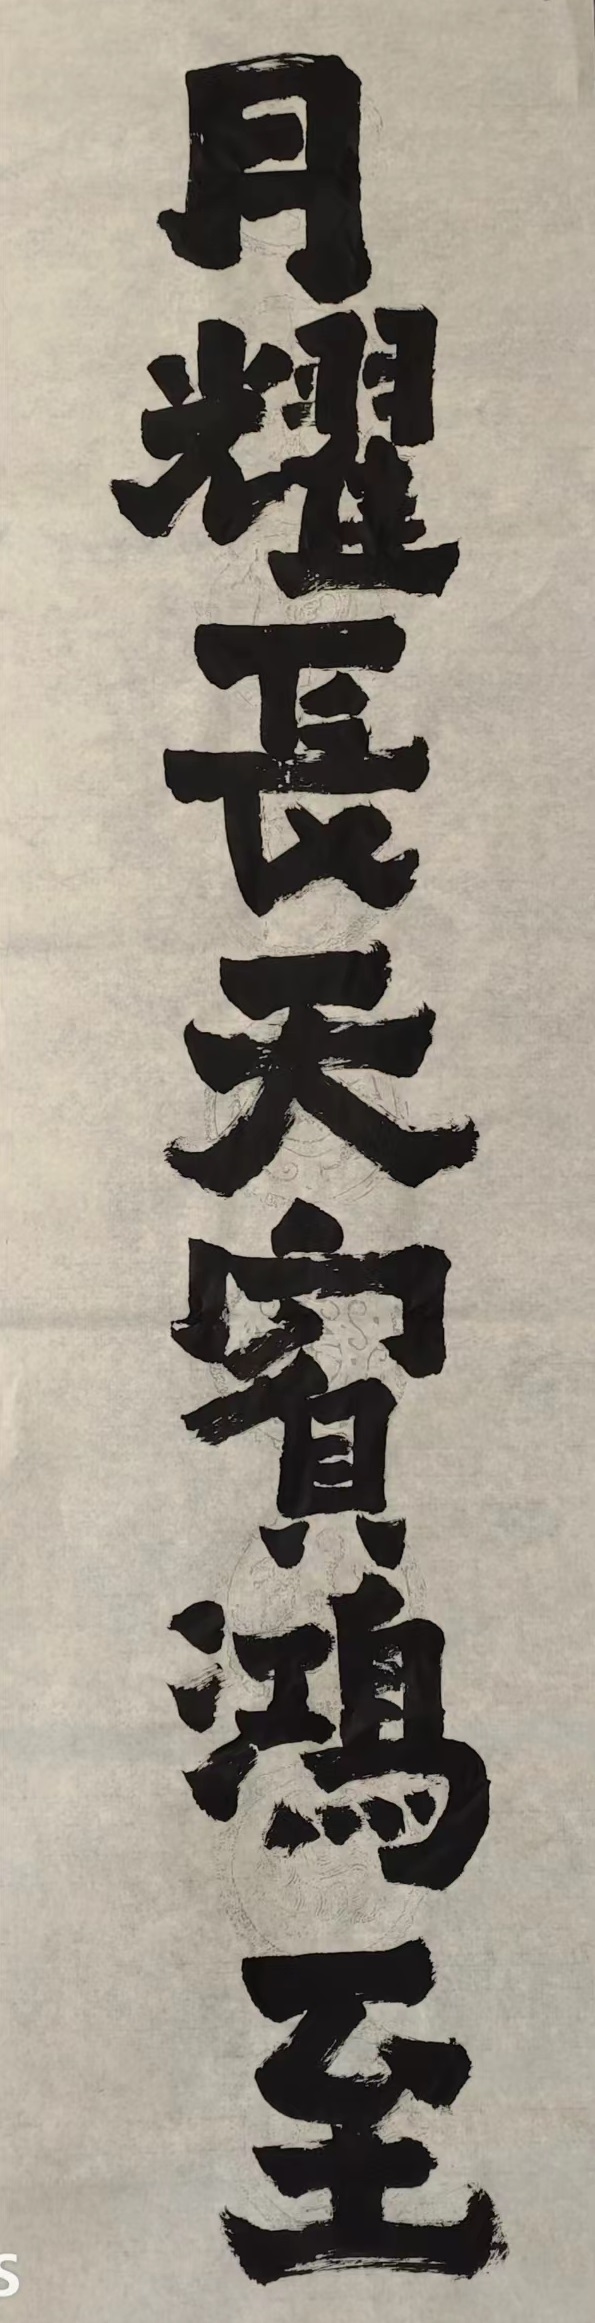 月耀長天賓鴻至
s